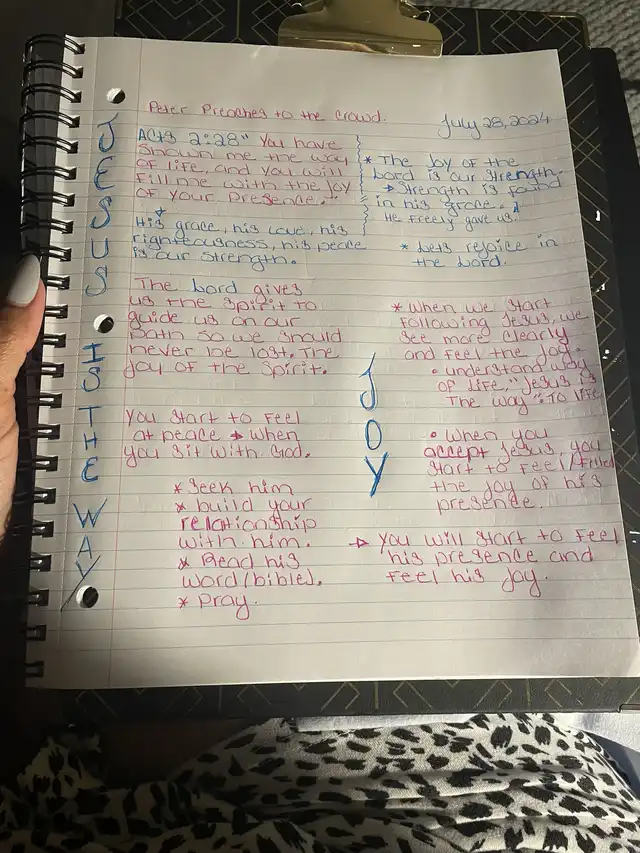 Peter Preaches to the Crowd.
July 28, 2024
JESUS IS THE WAY
Acts 2:28 "You have
shown me the way
of life, and you will
fill me with the joy
of your presence."
His grace, his love, his
righteousness, his peace
is our strength.
The Lord gives
us the spirit to
guide us on our
path so we should
never be lost. The
joy of the spirit.
You start to feel
at peace → when
you sit with God.
* Seek him
* build your
relationship
with him.
* Read his
word/bible).
* Pray.
* The Joy of the
Lord is our strength.
→ Strength is found
in his grace.
He freely gave us.
* Lets rejoice in
the Lord.
JOY
* When we start
following Jesus, we
see more clearly
and feel the joy.
• understand way
of life, "Jesus is
The way". To life
• When you
accept Jesus, you
start to feel/filled
the joy of his
presence.
→ You will start to feel
his presence and
feel his joy.